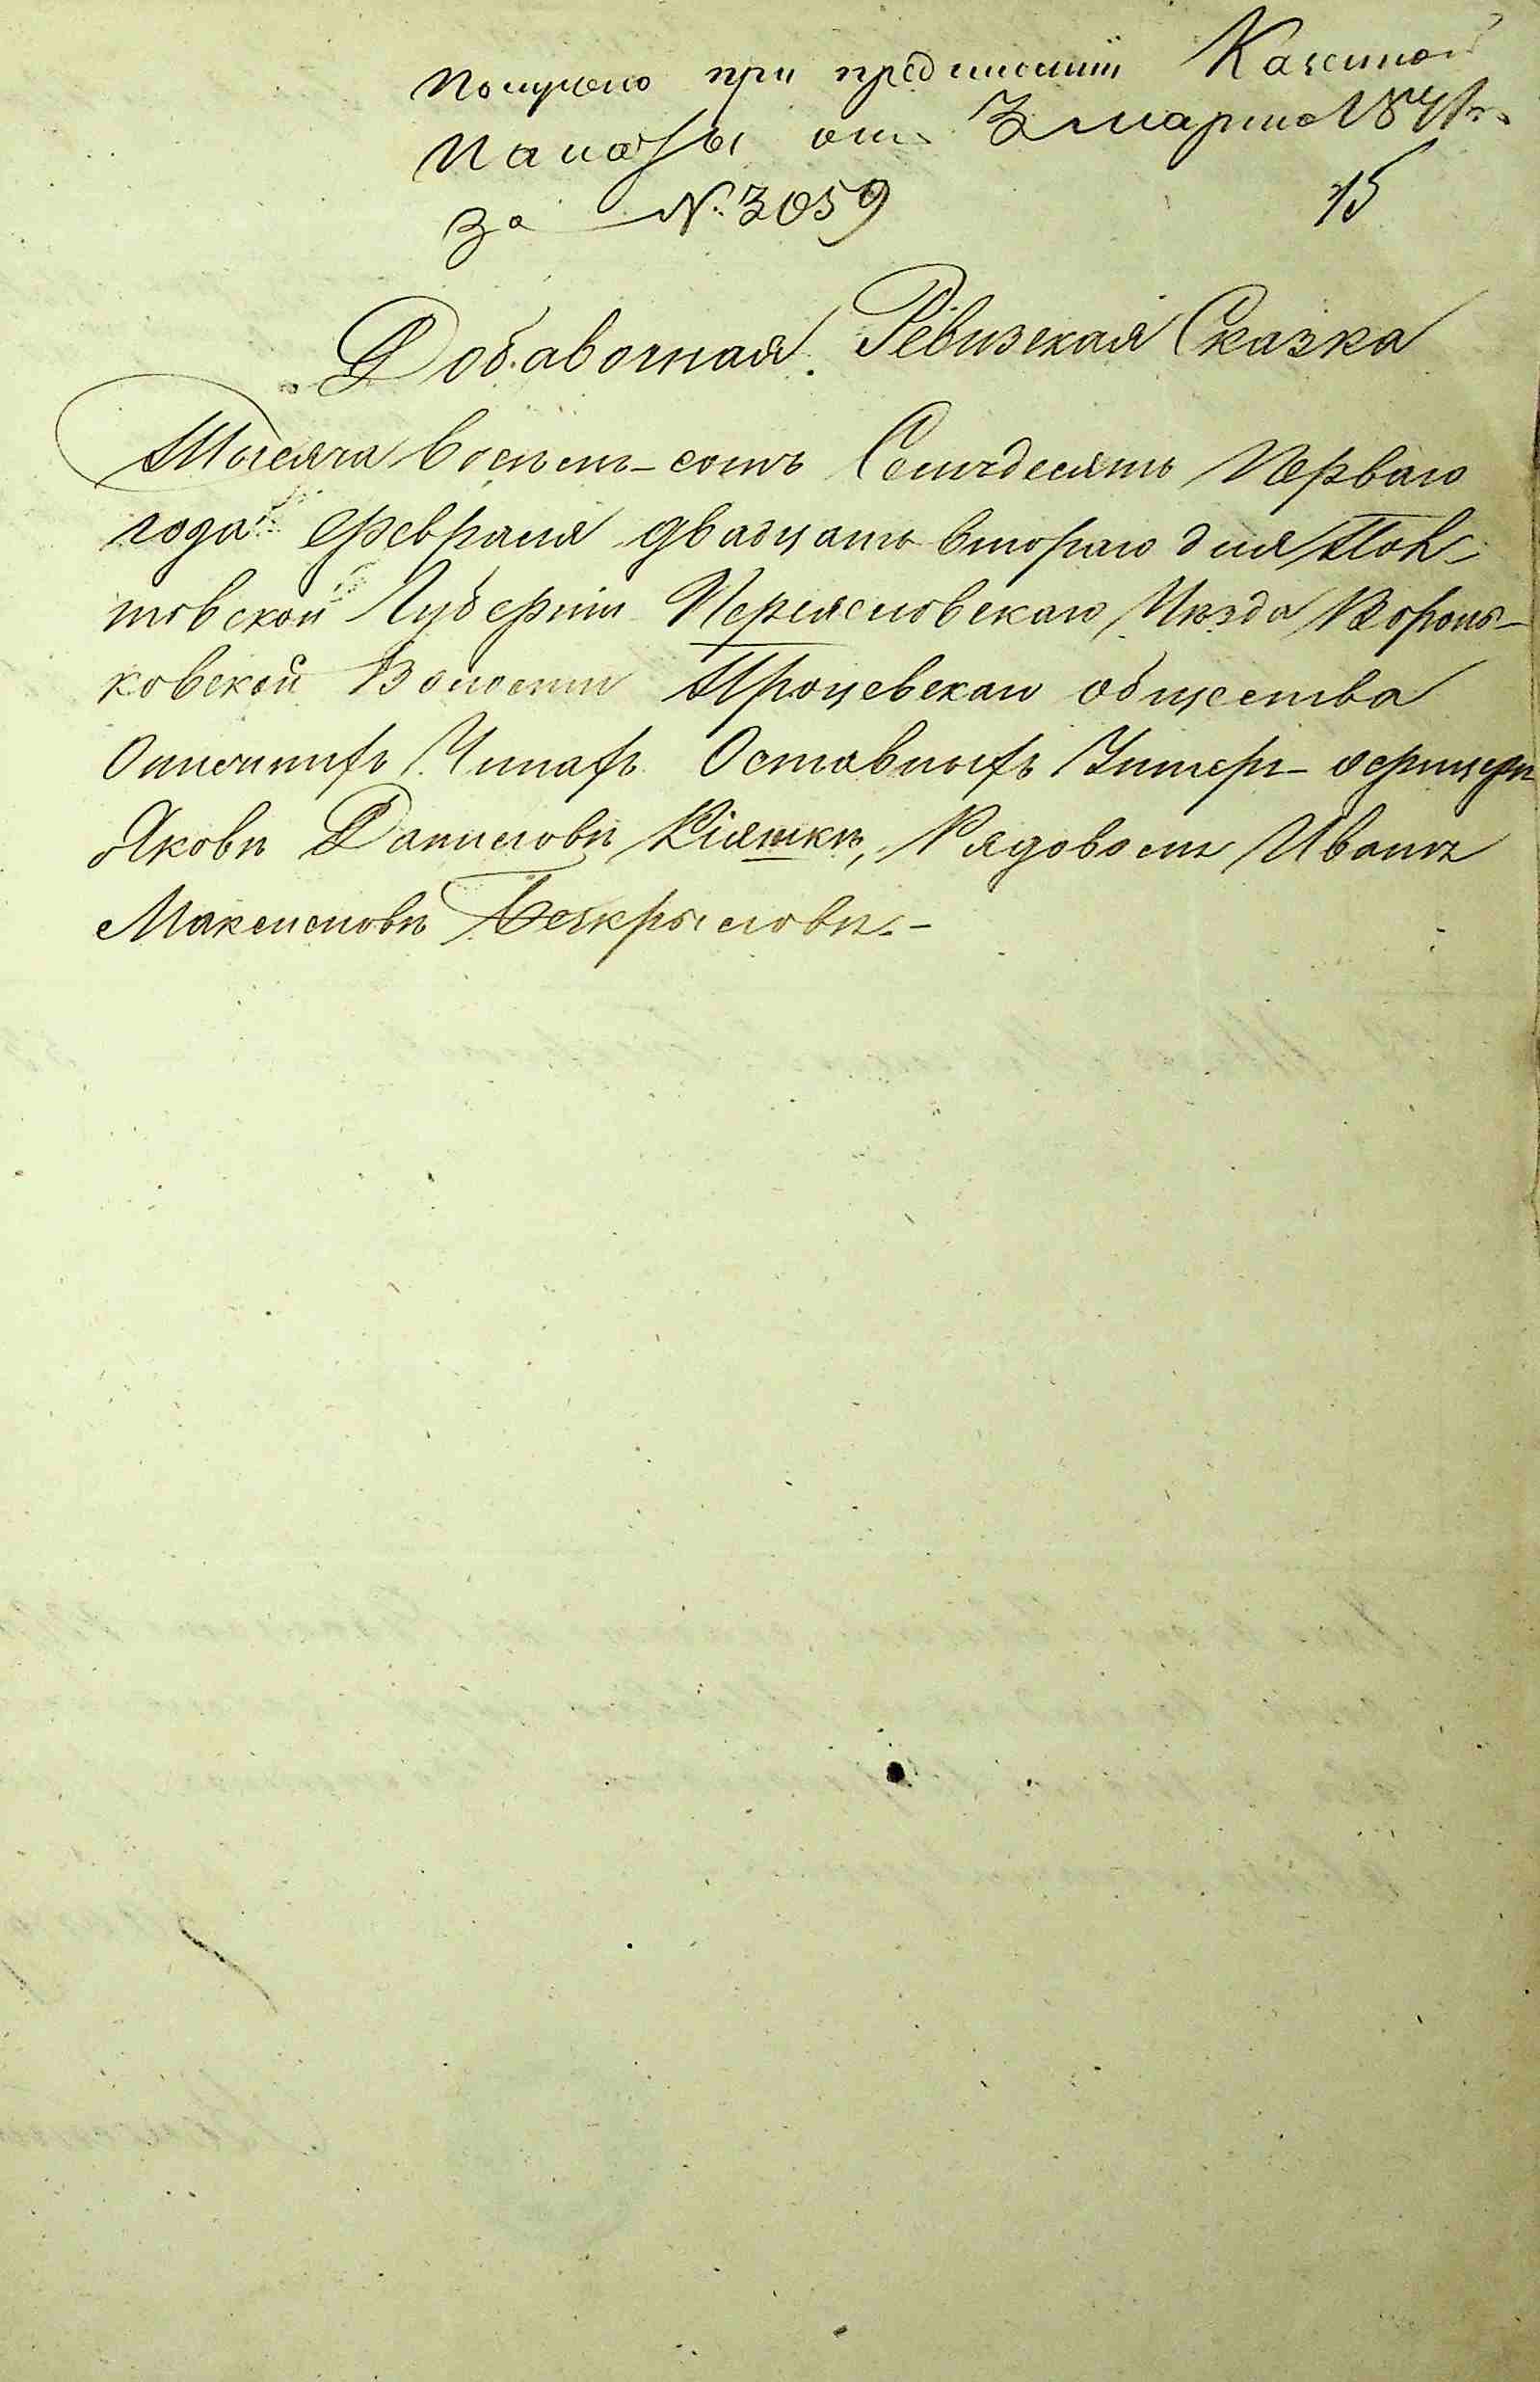 Получено при предписании Казенной
Палаты отъ 3 марта 1871 г.
за №. 3059
15
Добавочная Ревизская Сказка
Тысяча восемь-сотъ Семьдесятъ Перваго
года Февраля двадцать втораго дня Пол-
товской Губерніи Переясловскаго Уѣзда Вороньковской
ковской Волости Процевскаго общества
Нижнихъ Чинахъ Отставныхъ Унтеръ-офицеръ
Яковъ Даниловъ Кіяшко, Рядовомъ Иванъ
Максимовъ Безкрыловъ.-